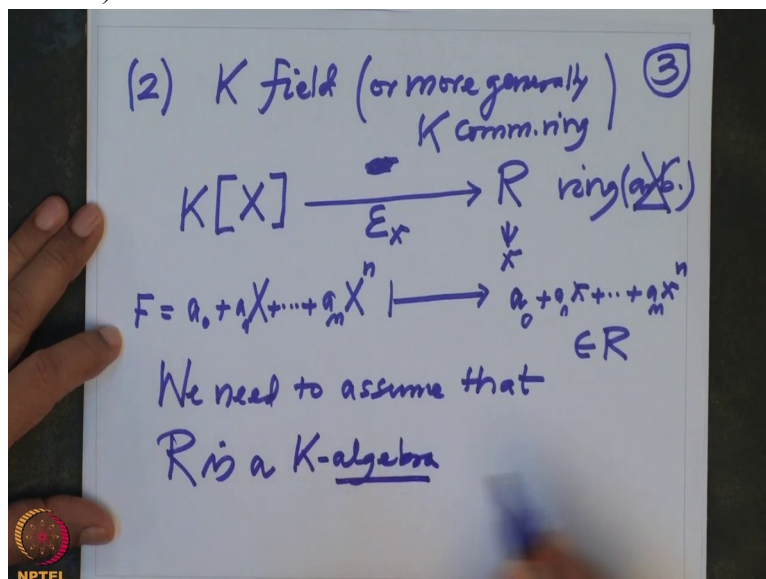 (2) K field (or more generally K comm. ring) ③
K[X] ⟶ R ring
ε_x
x
F = a_0 + a_1 X + ... + a_n X^n ⟼ a_0 + a_1 x + ... + a_n x^n
∈ R
We need to assume that
R is a K-algebra
NPTEL